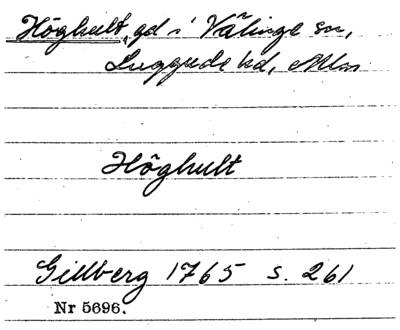 Höghult, gd i Välinge sn,
Luggude hd, Mlm
Höghult
Gillberg 1765 s. 261
Nr 5696.